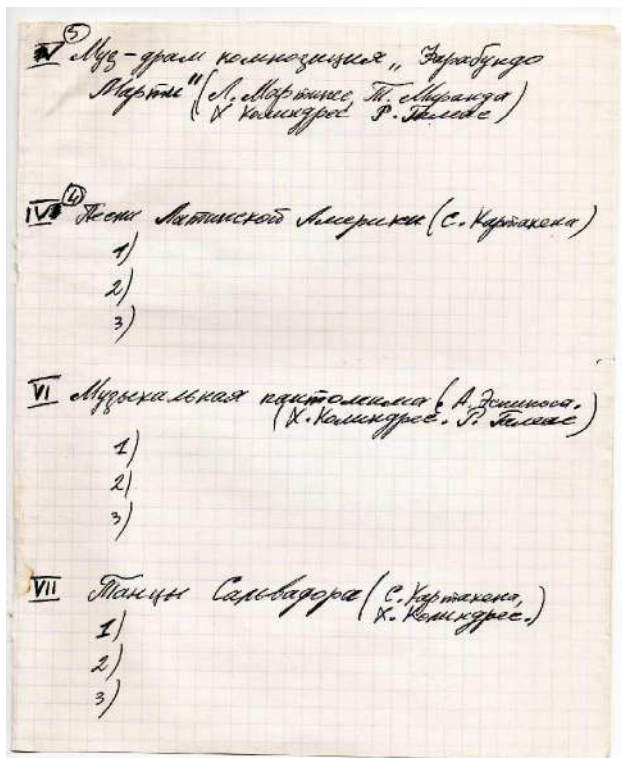 5
V Муз-драм композиция „Фарабундо
Марти" (Л. Мартинес, Т. Миранда)
Х Колиндрес Р. Галеас
4
IV Песни Латинской Америки (С. Картахена)
1)
2)
3)
VI Музыкальная пантомима (А. Эспиноса.
(Х. Колиндрес. Р. Галеас)
1)
2)
3)
VII Танцы Сальвадора (С. Картахена,
Х. Колиндрес.)
1)
2)
3)